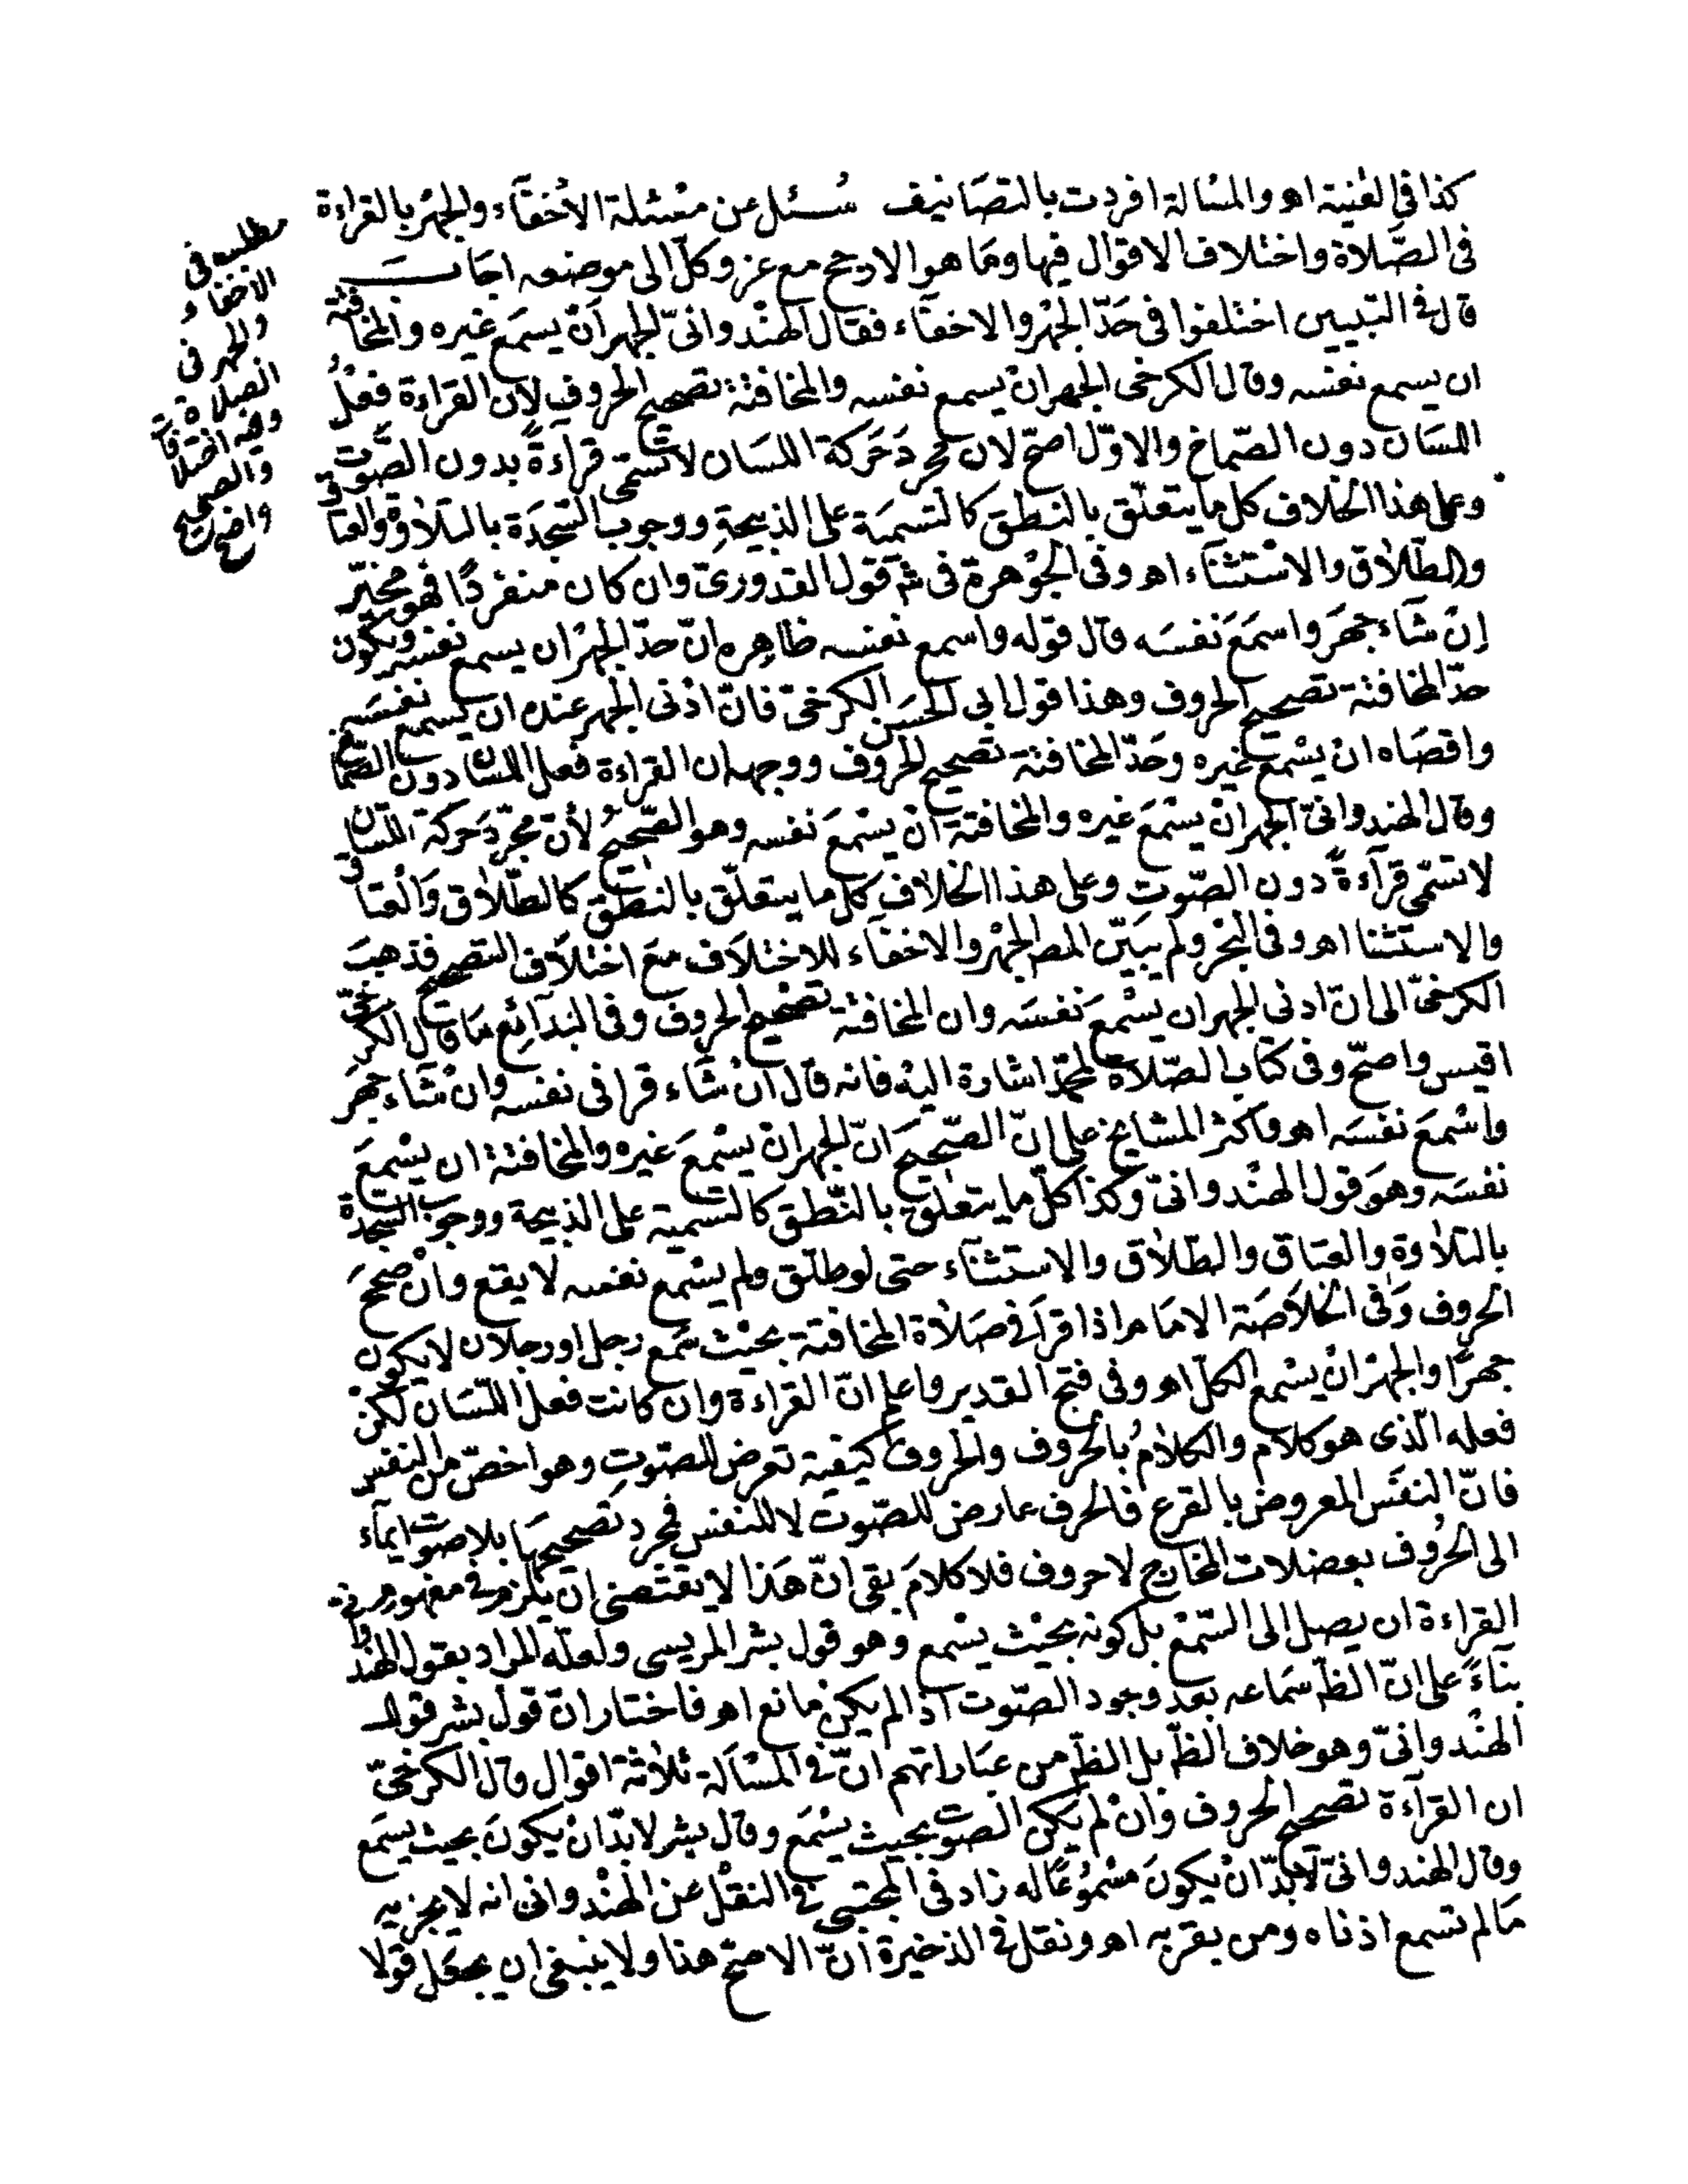 كذا فى القنية اهـ والمسالة افردت بالتصانيف سُئل عن مسئلة الاخفآء والجهر بالقراءة
فى الصّلاة واختلاف الاقوال فيها وما هو الارجح مع عز وكلّ الى موضعه اجاب
قال فى التبيين اختلفوا فى حَدّ الجهْر والاخفآء فقال الهنْدوانىّ الجهر اَنْ يسمَع غيره والمخافتة
ان يسمع نفسه وقال الكرخى الجهر انْ يسمع نفسه والمخافتة تصحيح الحروفِ لان القراءة فعْلُ
اللسَان دون الصّماخ والاوّل اصحّ لان مجرّدَ حَركة اللسَان لا تسَمّى قراءةً بدون الصَّوت
وعلى هذا الخلاف كل ما يتعلّق بالنطق كالتسميَة على الذبيحةِ ووجوب السّجدَة بالتلاوة والعتاق
والطّلاق والاسْتثنآء اهـ وفى الجَوْهرة فى شرح قول القدورىّ وان كان منفردًا فهو مخيّر
إنْ شَآء جهَر واسمَعَ نَفسَه قال قوله واسمع نفسه ظاهِره انّ حدّ الجهْر ان يسمع نفسه ويكون
حدّ المخافتة تصحيح الحروف وهذا قول ابى الحَسَن الكرخىّ فانّ ادْنى الجهر عنده ان يسمع نفسَه
واقصَاه انْ يسْمع غيره وحَدّ المخافتة تصحيح الحروف ووجهه ان القراءة فعل اللسَان دون الصّماخ
وقال الهندوانىّ الجهر انْ يسْمعَ غيره والمخافتة انْ يسْمعَ نفسه وهو الصّحيْحُ لأنّ مجرّدِ حَركة اللسَان
لا تسَمّى قرآءةً دون الصّوت وعلى هذا الخلافِ كل ما يتعلّق بالنطق كالطّلاق وَالعْتاق
والاستثنا اهـ وفى البَحْر ولم يبَيّن المص الجهْر والاخفَآء للاختلاَف معَ اختلاَف التصحيح فذهبَ
الكرخىّ الى انّ ادنى الجهر ان يسْمعَ نَفسَه وان المخافتة تصْحيح الحروف وفى البَدآئِع مَا قال الكرخىّ
اقيس واصحّ وفى كتاب الصّلاة لمحمّد اشارة اليْه فانه قال انْ شَآء قرا فى نفسه وانْ شَآء جهَر
واسْمعَ نفسَه اهـ واكثر المشايخ على انّ الصّحيح اَنّ الجهر انْ يسْمعَ غيره والمخافتة ان يسْمعَ
نفسَه وهوَ قول الهنْدوانىّ وكذا كلّ ما يتعلّق بالنّطق كالتسمية على الذبيحة ووجوب السّجدة
بالتلاوة والعتاق والطّلاق والاستثنآء حتى لو طلّق ولم يسْمع نفسه لا يقع وانْ صحّحَ
الحروف وَفى الخلاَصَة الامَام اذا قراَ فى صَلاة المخافتة بحيْث سَمع رجل او رجلان لا يكون
جهرًا والجهْر انْ يسْمع الكلّ اهـ وفى فتح القدير واعلم انّ القراءة وان كانت فعل اللّسَان لكنْ
فعله الّذى هو كلام والكلامُ بالحروف والحروف كيفية تعرض للصّوت وهو اخصّ من النفس
فانّ النفَس المعروض بالقرع فالحرف عارض للصّوت لا للنفس فمجرد تصحيحهَا بلا صوت ايمآء
الى الحُروف بعضلات المخارج لا حروف فلا كلامَ بقى انّ هَذا لا يقتضى ان يلزم فى مفهوم
القراءة ان يصل الى السّمْع بل كونه بحيْث يسْمع وهو قول بشر المريسى ولعلّه المراد بقول الهندوا
بنآءً على انّ الظ سَماعه بعد وجود الصّوت اذا لم يكن مانع اهـ فاختار انّ قول بشر قول
الهنْدوانىّ وهو خلاف الظّ بل الظّ من عبَاراتهم انّ فى المسْاَلة ثلاثة اقوال قال الكرخىّ
ان القرآءة تصحيح الحروف وانْ لم يكن الصوت بحيث يسْمَع وقال بشر لابدّ انْ يكونَ بحيث يسمَع
وقال الهندوانىّ لابدّ انْ يكونَ مسْموُعًا له زاد فى المجتبى فى النقْل عن الهنْدوانى انه لا يجزيه
مَا لم تسمع اذناه ومن بقربه اهـ ونقل فى الذخيرة انّ الاصحّ هذا ولا ينبغى ان يجعَل قولا
مطلب فى
الاخفاء
والجهر فى
الصلاة
وفيه اختلافات
والصحيح
واضح